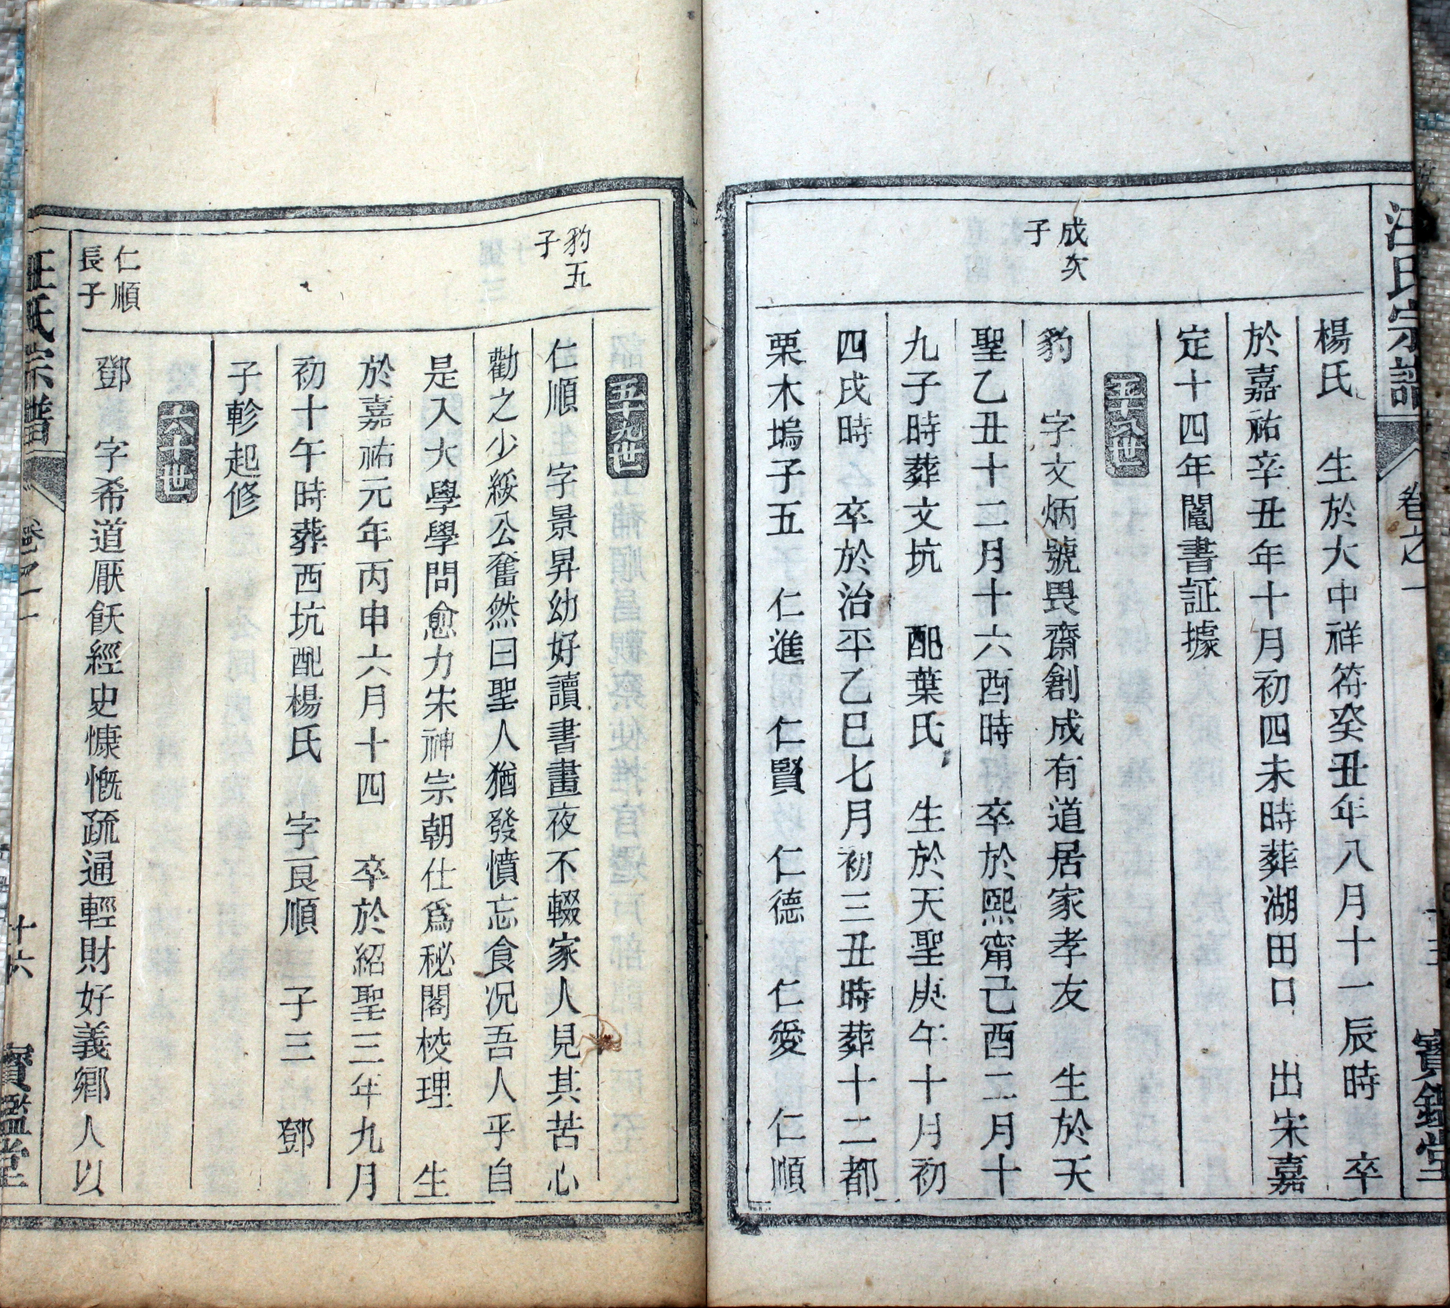 汪氏宗譜
卷之一
十五
寶鑑堂
楊氏 生於大中祥符癸丑年八月十一辰時 卒
於嘉祐辛丑年十月初四未時葬湖田口 出宋嘉
定十四年闔書証據
五十八世
成次
子
豹 字文炳號畏齋創成有道居家孝友 生於天
聖乙丑十二月十六酉時 卒於熙甯己酉二月十
九子時葬文坑 配葉氏 生於天聖庚午十月初
四戌時 卒於治平乙巳七月初三丑時葬十二都
栗木塢子五 仁進 仁賢 仁德 仁愛 仁順
五十九世
豹五
子
仁順 字景昇幼好讀書晝夜不輟家人見其苦心
勸之少綏公奮然曰聖人猶發憤忘食况吾人乎自
是入大學學問愈力宋神宗朝仕爲秘閣校理 生
於嘉祐元年丙申六月十四 卒於紹聖三年九月
初十午時葬西坑配楊氏 字良順 子三 鄧
子軫起修
六十世
仁順
長子
鄧 字希道厭飫經史慷慨疏通輕財好義鄉人以
汪氏宗譜
卷之一
十六
寶鑑堂